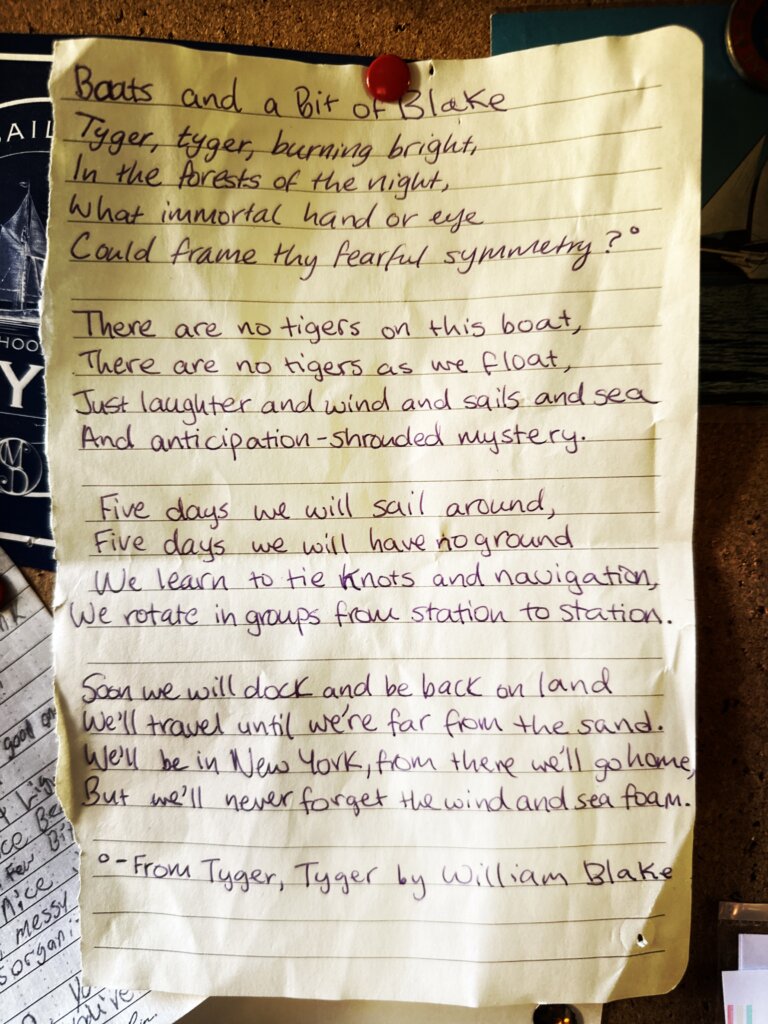 Boats and a Bit of Blake
Tyger, tyger, burning bright,
In the forests of the night,
What immortal hand or eye
Could frame thy fearful symmetry?°
There are no tigers on this boat,
There are no tigers as we float,
Just laughter and wind and sails and sea
And anticipation-shrouded mystery.
Five days we will sail around,
Five days we will have no ground
We learn to tie knots and navigation,
We rotate in groups from station to station.
Soon we will dock and be back on land
We'll travel until we're far from the sand.
We'll be in New York, from there we'll go home,
But we'll never forget the wind and sea foam.
°-From Tyger, Tyger by William Blake
AIL
HOO
Y
good
Few
Nice
messy